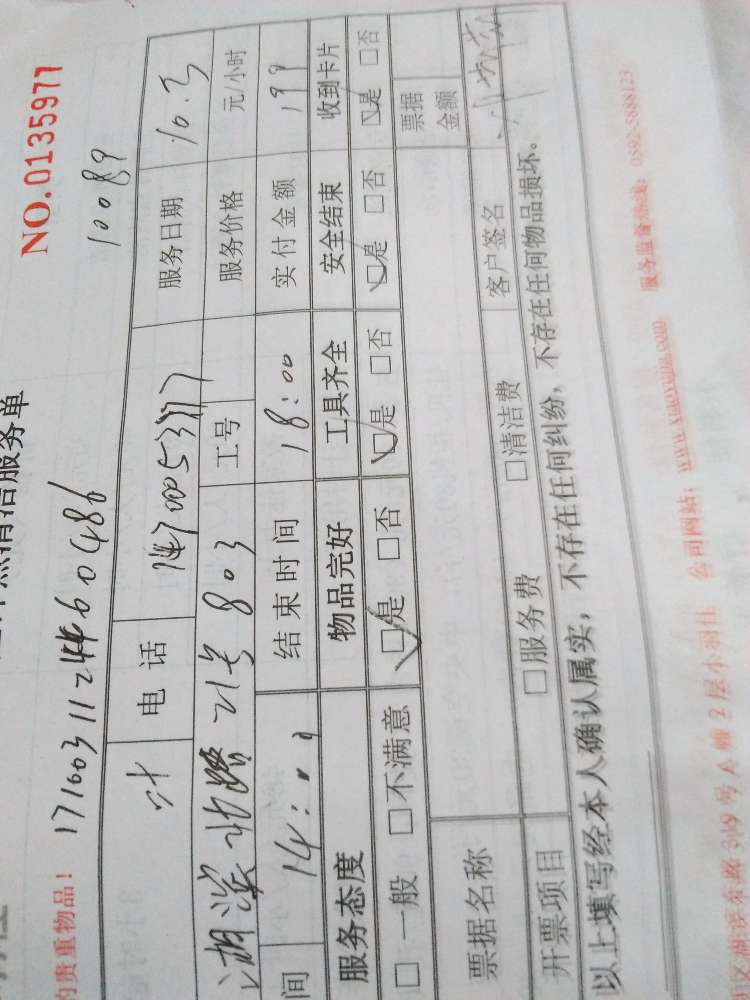 清洁服务单
NO.0135977
的贵重物品! 1710031124460486 10089
叶 电话 14700053717 服务日期 10.3
湖滨北路21号803 工号 服务价格 元/小时
间 14:00 结束时间 18:00 实付金额 199
服务态度 物品完好 工具齐全 安全结束 收到卡片
□一般 □不满意 □是 □否 □是 □否 □是 □否 □是 □否
票据名称 票据金额
开票项目 □服务费 □清洁费 客户签名
以上填写经本人确认属实,不存在任何纠纷,不存在任何物品损坏。
区湖滨东路319号A幢2层小羽佳 公司网站:www.xiaoyujia.com 服务监督热线:0592-5888123